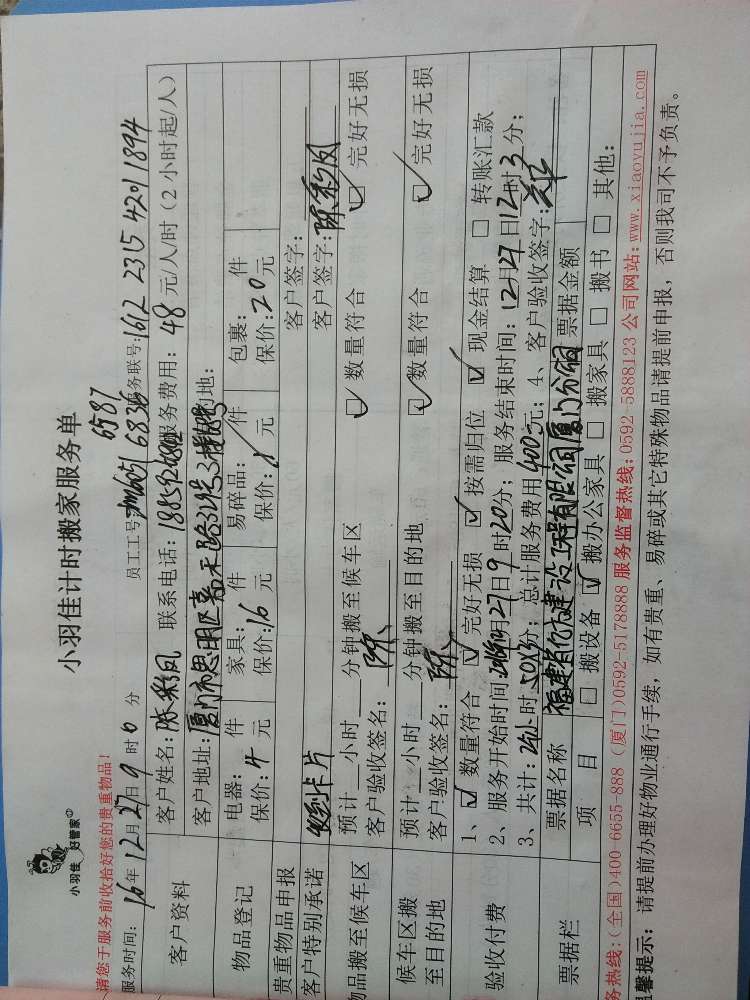 小羽佳 好管家
小羽佳计时搬家服务单
请您于服务前收拾好您的贵重物品!
6587
服务时间: 16年12月27日9时0分 员工工号: 6836 务联号:1612 2315 4201 1894
客户资料
客户姓名:陈彩凤 联系电话: 服务费用: 48 元/人/时(2小时起/人)
客户地址:厦门市思明区嘉禾路 的地:
物品登记
电器: 件 家具: 件 易碎品: 件 包裹: 件
保价: 4 元 保价:16 元 保价: 元 保价:20元
贵重物品申报
客户签字:
客户特别承诺
收到卡片 客户签字:陈彩凤
物品搬至候车区
预计__小时__分钟搬至候车区 ☑ 数量符合 ☑ 完好无损
客户验收签名:陈
候车区搬至目的地
预计__小时__分钟搬至目的地 ☑ 数量符合 ☑ 完好无损
客户验收签名:陈
验收付费
1、☑ 数量符合 ☑ 完好无损 ☑ 按需归位 ☑ 现金结算 □ 转账汇款
2、服务开始时间: 月27日9时20分; 服务结束时间:12月27日12时3分;
3、共计: 时 分; 总计服务费用400元; 4、客户验收签字:
票据栏
票据名称 福建省 建设工程有限公司厦门分公司 票据金额
项目 □ 搬设备 ☑ 搬办公家具 □ 搬家具 □ 搬书 □ 其他:
务热线:(全国)400-6655-888 (厦门)0592-5178888 服务监督热线:0592-5888123 公司网站:www.xiaoyujia.com
温馨提示: 请提前办理好物业通行手续, 如有贵重、易碎或其它特殊物品请提前申报, 否则我司不予负责。